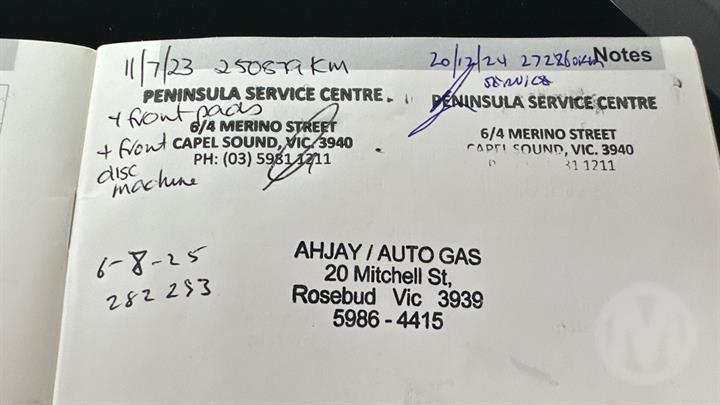 Notes
11/7/23 250879 KM
PENINSULA SERVICE CENTRE
+ front pads
6/4 MERINO STREET
+ front
CAPEL SOUND, VIC. 3940
disc
machine
PH: (03) 5981 1211
20/12/24 272860KM
SERVICE
PENINSULA SERVICE CENTRE
6/4 MERINO STREET
CAPEL SOUND, VIC. 3940
31 1211
6-8-25
282 283
AHJAY / AUTO GAS
20 Mitchell St,
Rosebud Vic 3939
5986 - 4415
M